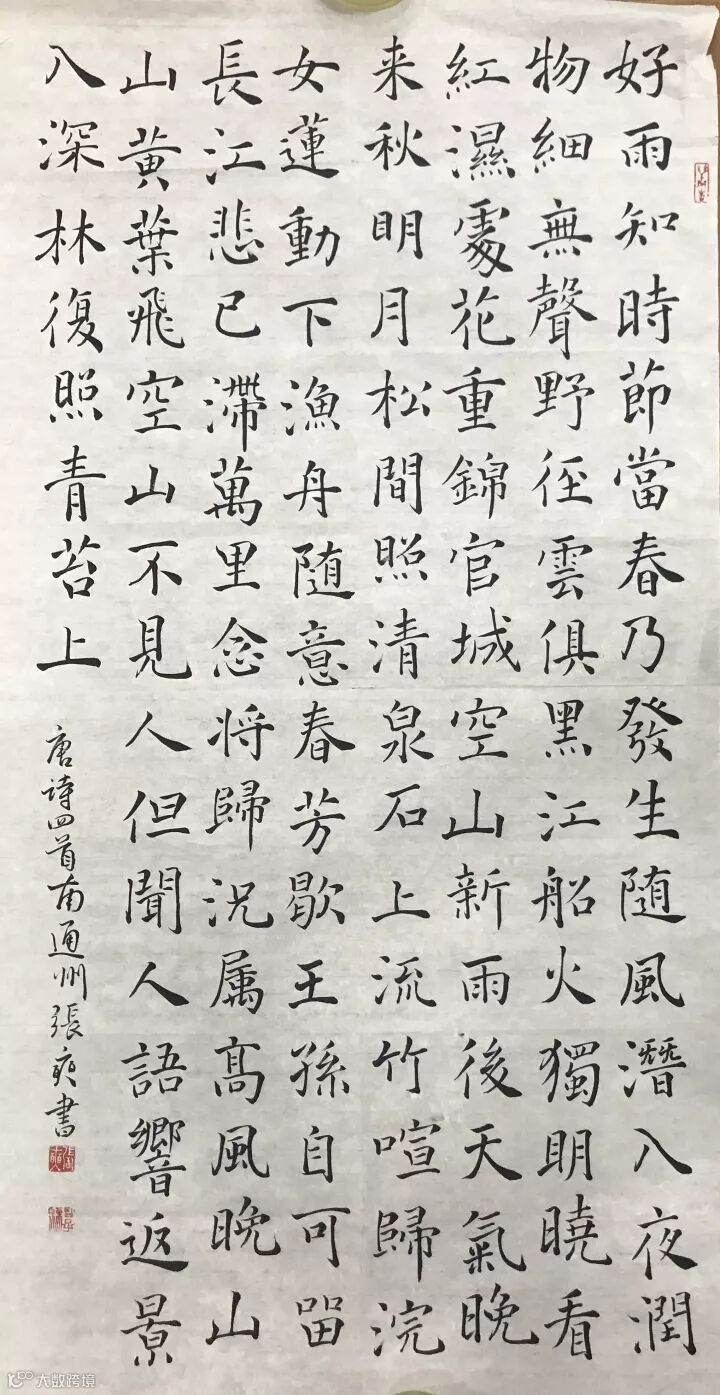 好雨知時節當春乃發生随風潛入夜潤
物細無聲野径雲俱黑江船火獨明曉看
紅濕處花重錦官城空山新雨後天氣晚
来秋明月松間照清泉石上流竹喧歸浣
女蓮動下渔舟随意春芳歇王孫自可留
長江悲已滯萬里念将歸況属髙風晚山
山黄葉飛空山不見人但聞人語響返景
入深林復照青苔上
唐诗四首南通州張書
大数跨境